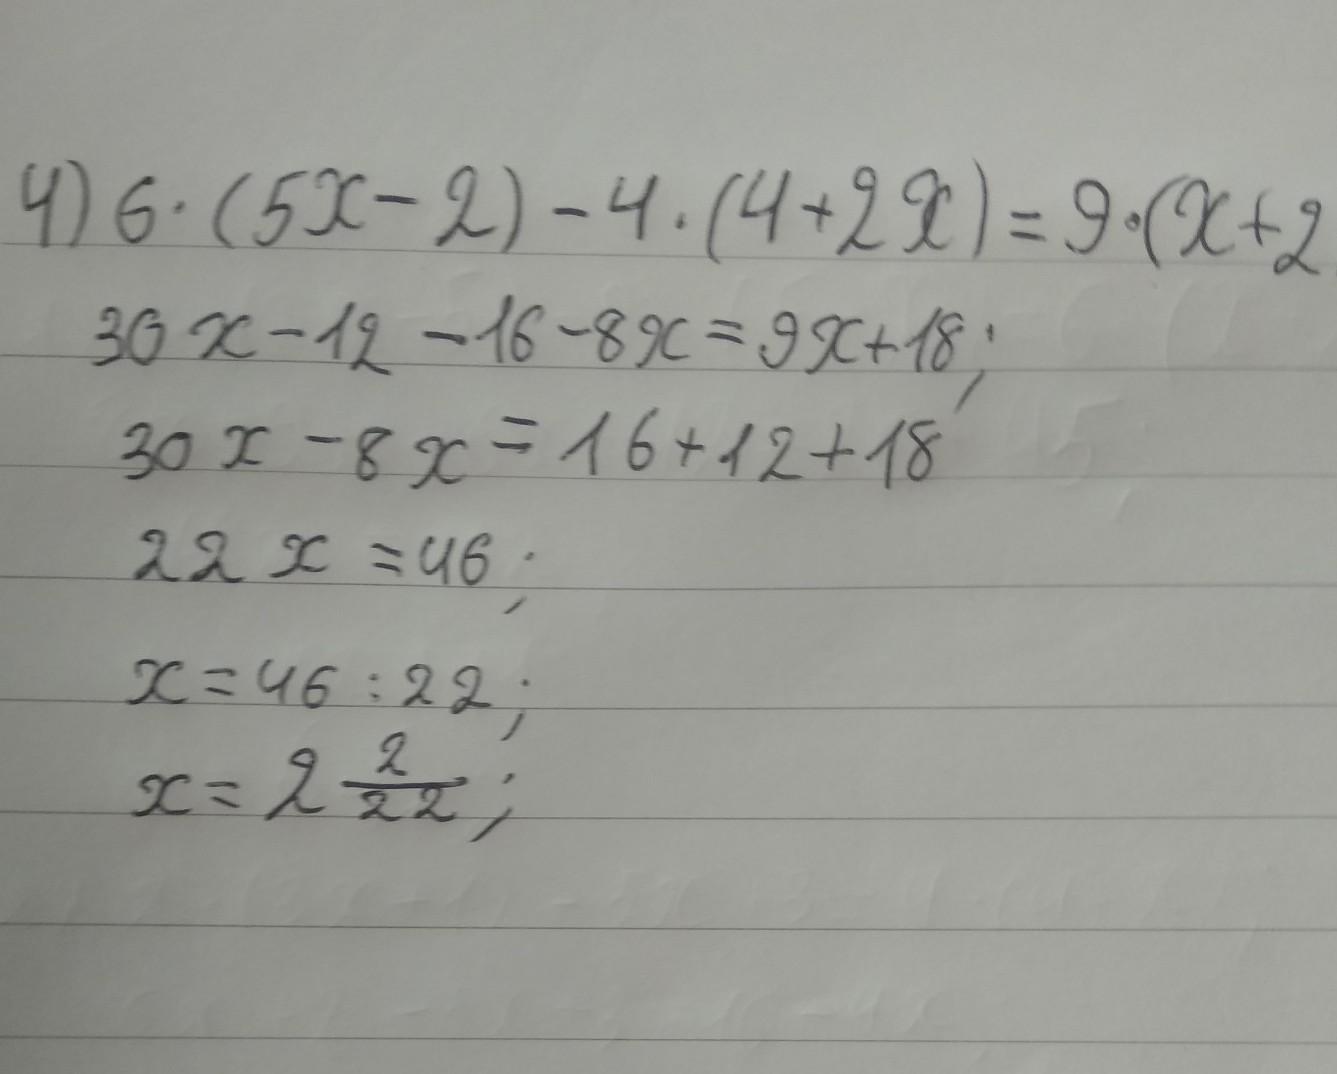 4) 6·(5x-2)-4·(4+2x)=9·(x+2
30x-12-16-8x=9x+18;
30x-8x=16+12+18
22x=46;
x=46:22;
x=2 2/22;